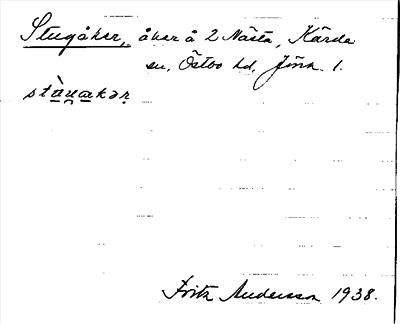 Stugåker, åker å 2 Nästa, Kärda
sn, Östbo hd, Jönk. l.
stàu̯akər
Fritz Andersson 1938.